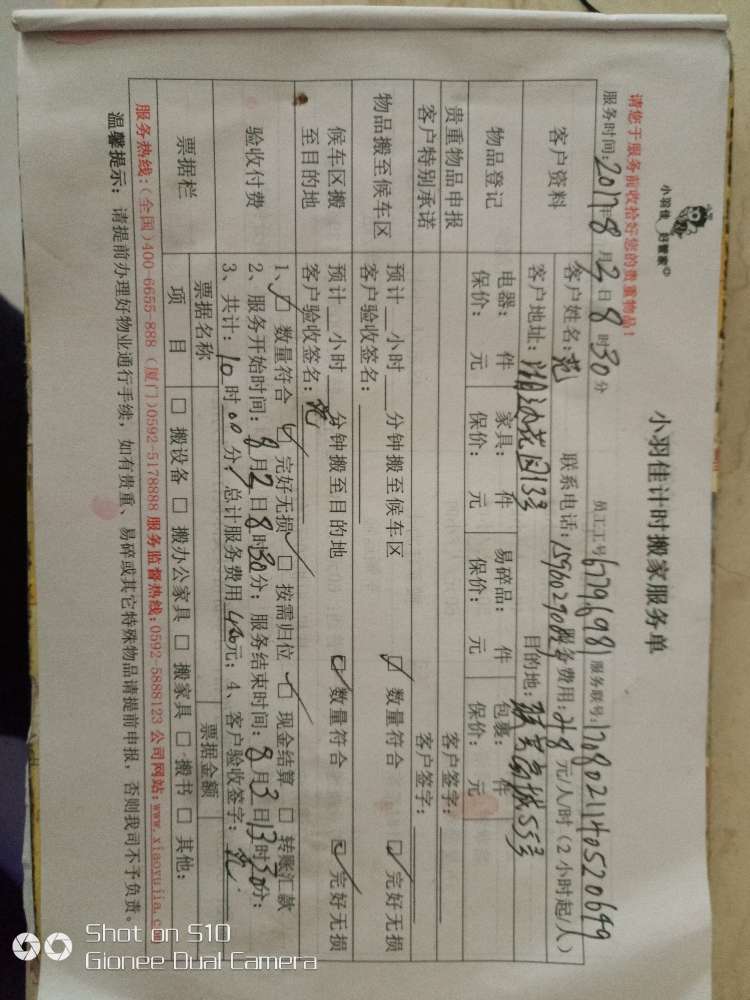 小羽佳 好管家
小羽佳计时搬家服务单
请您于服务前收拾好您的贵重物品！
员工工号: 679.698) 服务联号: 1708021140520649
服务时间: 2017年8月2日8时30分
客户资料
客户姓名: 范 联系电话: 服务费用: 元/人/时(2小时起/人)
客户地址: 湖边花园13号 目的地: 城55号
物品登记
电器: 件 家具: 件 易碎品: 件 包裹: 件
保价: 元 保价: 元 保价: 元 保价: 元
贵重物品申报 客户签字:
客户特别承诺 客户签字:
物品搬至候车区
预计__小时__分钟搬至候车区 ☑ 数量符合 ☑ 完好无损
客户验收签名:
候车区搬至目的地
预计__小时__分钟搬至目的地 ☑ 数量符合 ☑ 完好无损
客户验收签名: 范
验收付费
1、☑ 数量符合 ☑ 完好无损 □ 按需归位 ☑ 现金结算 □ 转账汇款
2、服务开始时间: 8月2日8时30分; 服务结束时间: 8月3日13时30分;
3、共计: 10时00分, 总计服务费用 元; 4、客户验收签字:
票据栏
票据名称 票据金额
项目 □ 搬设备 □ 搬办公家具 □ 搬家具 □ 搬书 □ 其他:
服务热线: (全国)400-6655-888 (厦门)0592-5178888 服务监督热线: 0592-5888123 公司网站: www.xiaoyujia.com
温馨提示: 请提前办理好物业通行手续, 如有贵重、易碎或其它特殊物品请提前申报, 否则我司不予负责。
Shot on S10
Gionee Dual Camera